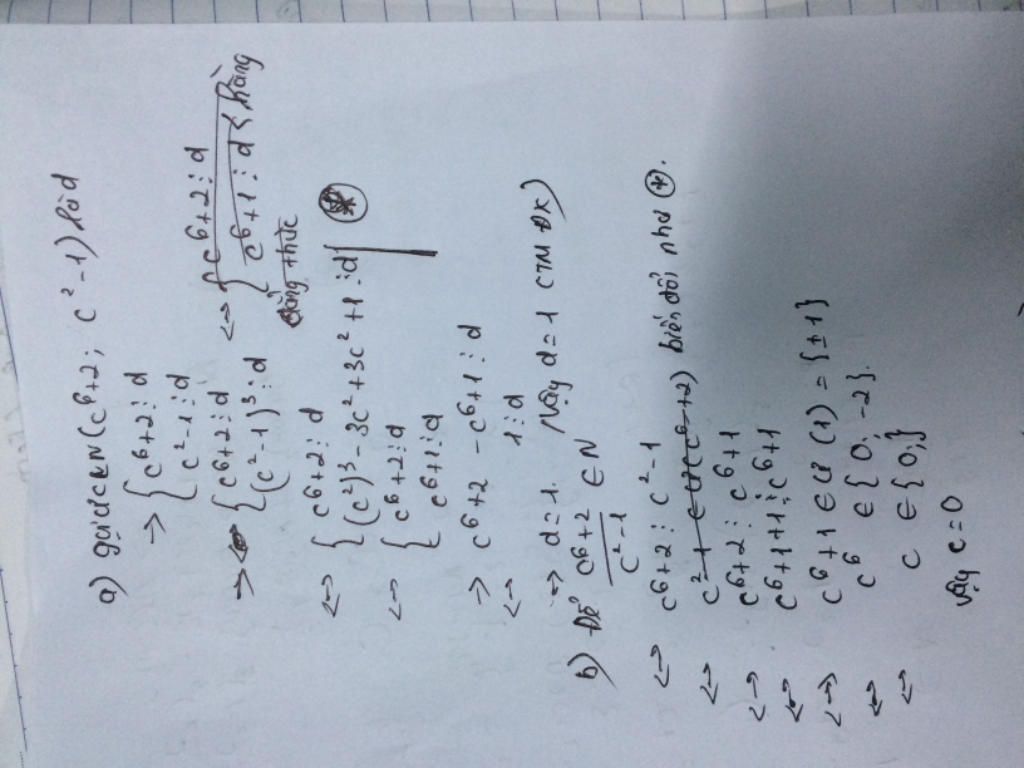 a) gọi ƯCLN (c⁶+2; c²-1) là d
→ { c⁶+2 ⋮ d
c²-1 ⋮ d
→ { c⁶+2 ⋮ d ↔ { c⁶+2 ⋮ d
(c²-1)³ ⋮ d c⁶+1 ⋮ d < hằng
đẳng thức
↔ { c⁶+2 ⋮ d
(c²)³-3c²+3c²+1 ⋮ d (*)
↔ { c⁶+2 ⋮ d
c⁶+1 ⋮ d
→ c⁶+2 - c⁶+1 ⋮ d
↔ 1 ⋮ d
→ d=1. Vậy d=1 (TM ĐK)
b) Để c⁶+2 / c²-1 ∈ N
↔ c⁶+2 ⋮ c²-1
↔ c²-1 ∈ Ư(c⁶+2) biến đổi như (*).
↔ c⁶+2 ⋮ c⁶+1
↔ c⁶+1+1 ⋮ c⁶+1
↔ c⁶+1 ∈ Ư(1) = {±1}
↔ c⁶ ∈ {0; -2}.
↔ c ∈ {0;}
Vậy c=0